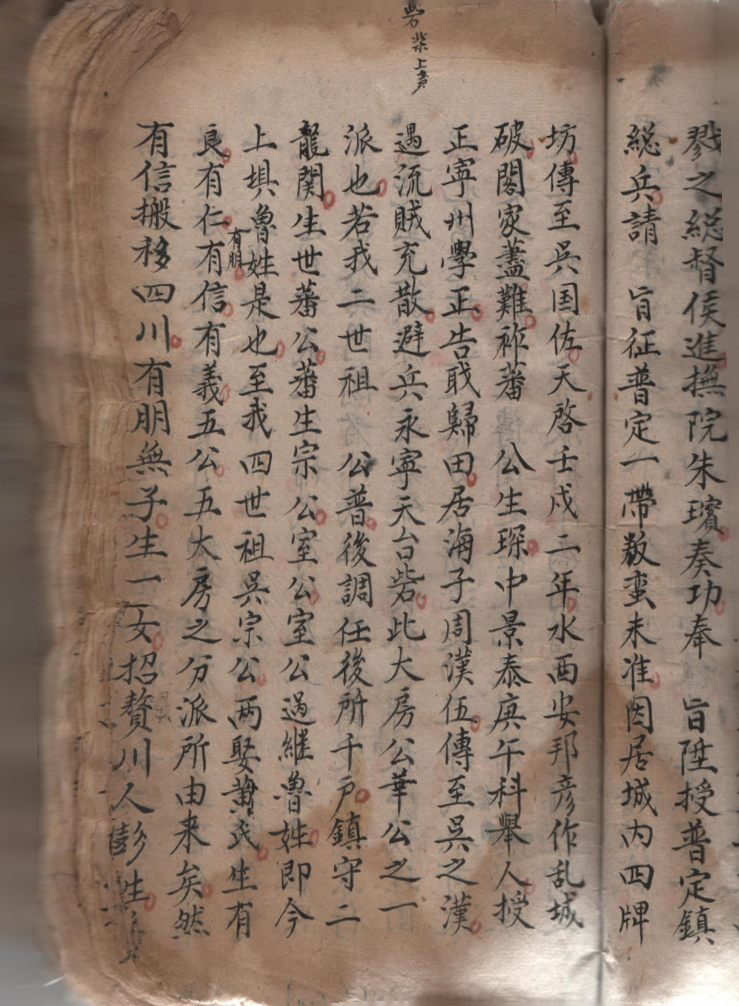 戮之総督侯進撫院朱璸奏功奉 旨陞授普定鎮
総兵請 旨征普定一帶叛蛮未准因居城内四牌
坊傳至吳国佐天啓壬戌二年水西安邦彦作乱城
破閤家藎難祚蕃 公生琛中景泰庚午科舉人授
正寧州學正告戝歸田居海子周漢伍傳至吳之漢
遇流賊充散避兵永寧天台砦此大房公華公之一
派也若我二世祖 公普後調任後所千戶鎮守二
龍関生世蕃公蕃生宗 公室公室公過継魯姓即今
上埧魯姓是也至我四世祖吳宗公两娶黄氏生有
良有仁有信有義五公五大房之分派所由来矣然
有朋
有信搬移四川有朋無子生一女招贅川人彭生
砦柴上声